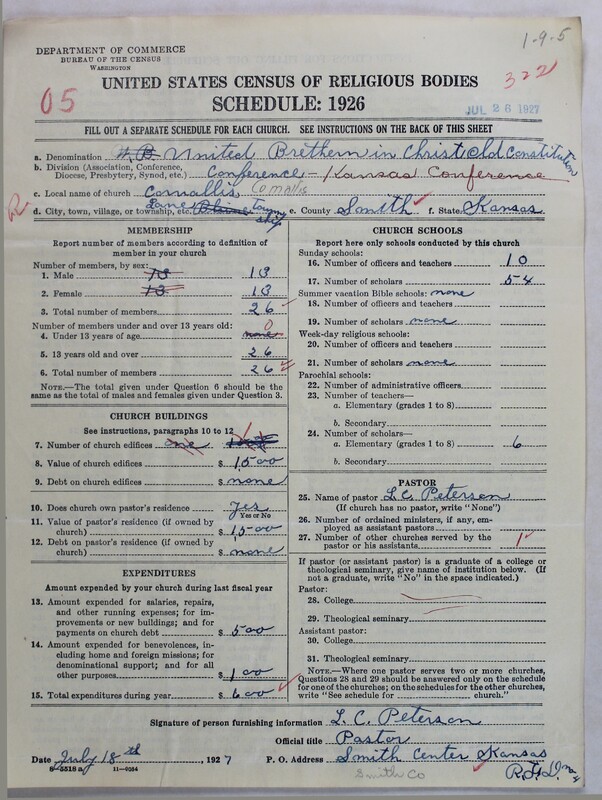 1-9-5
DEPARTMENT OF COMMERCE
BUREAU OF THE CENSUS
WASHINGTON
05
322
UNITED STATES CENSUS OF RELIGIOUS BODIES
SCHEDULE: 1926
JUL 26 1927
FILL OUT A SEPARATE SCHEDULE FOR EACH CHURCH. SEE INSTRUCTIONS ON THE BACK OF THIS SHEET
a. Denomination U.B. United Brethern in Christ old Constitution
b. Division (Association, Conference, Diocese, Presbytery, Synod, etc.) Conference - Kansas Conference
c. Local name of church
d. City, town, village, or township, etc. Lane Township e. County Smith f. State Kansas
MEMBERSHIP
Report number of members according to definition of
member in your church
Number of members, by sex:
1. Male 13 13
2. Female 13 13
3. Total number of members 26
Number of members under and over 13 years old: 0
4. Under 13 years of age none
5. 13 years old and over 26
6. Total number of members 26
NOTE.—The total given under Question 6 should be
the same as the total of males and females given under Question 3.
CHURCH BUILDINGS
See instructions, paragraphs 10 to 12
7. Number of church edifices one
8. Value of church edifices $ 1500
9. Debt on church edifices $ none
10. Does church own pastor's residence? Yes
Yes or No
11. Value of pastor's residence (if owned by
church) $ 1500
12. Debt on pastor's residence (if owned by
church) $ none
EXPENDITURES
Amount expended by your church during last fiscal year
13. Amount expended for salaries, repairs,
and other running expenses; for im-
provements or new buildings; and for
payments on church debt $ 500
14. Amount expended for benevolences, in-
cluding home and foreign missions; for
denominational support; and for all
other purposes $ 100
15. Total expenditures during year $ 600
CHURCH SCHOOLS
Report here only schools conducted by this church
Sunday schools:
16. Number of officers and teachers 10
17. Number of scholars 54
Summer vacation Bible schools: none
18. Number of officers and teachers
19. Number of scholars none
Week-day religious schools:
20. Number of officers and teachers
21. Number of scholars none
Parochial schools:
22. Number of administrative officers
23. Number of teachers—
a. Elementary (grades 1 to 8)
b. Secondary
24. Number of scholars—
a. Elementary (grades 1 to 8) 6
b. Secondary
PASTOR
25. Name of pastor L. C. Peterson
(If church has no pastor, write "None")
26. Number of ordained ministers, if any, em-
ployed as assistant pastors
27. Number of other churches served by the
pastor or his assistants 1
If pastor (or assistant pastor) is a graduate of a college or
theological seminary, give name of institution below. (If
not a graduate, write "No" in the space indicated.)
Pastor:
28. College
29. Theological seminary
Assistant pastor:
30. College
31. Theological seminary
NOTE.—Where one pastor serves two or more churches,
Questions 28 and 29 should be answered only on the schedule
for one of the churches; on the schedules for the other churches,
write "See schedule for church."
Signature of person furnishing information L. C. Peterson
Official title Pastor
Date July 18th, 1927 P. O. Address Smith Center Kansas
8-5518 a 11-0254
Smith Co
R.F.D. no 4